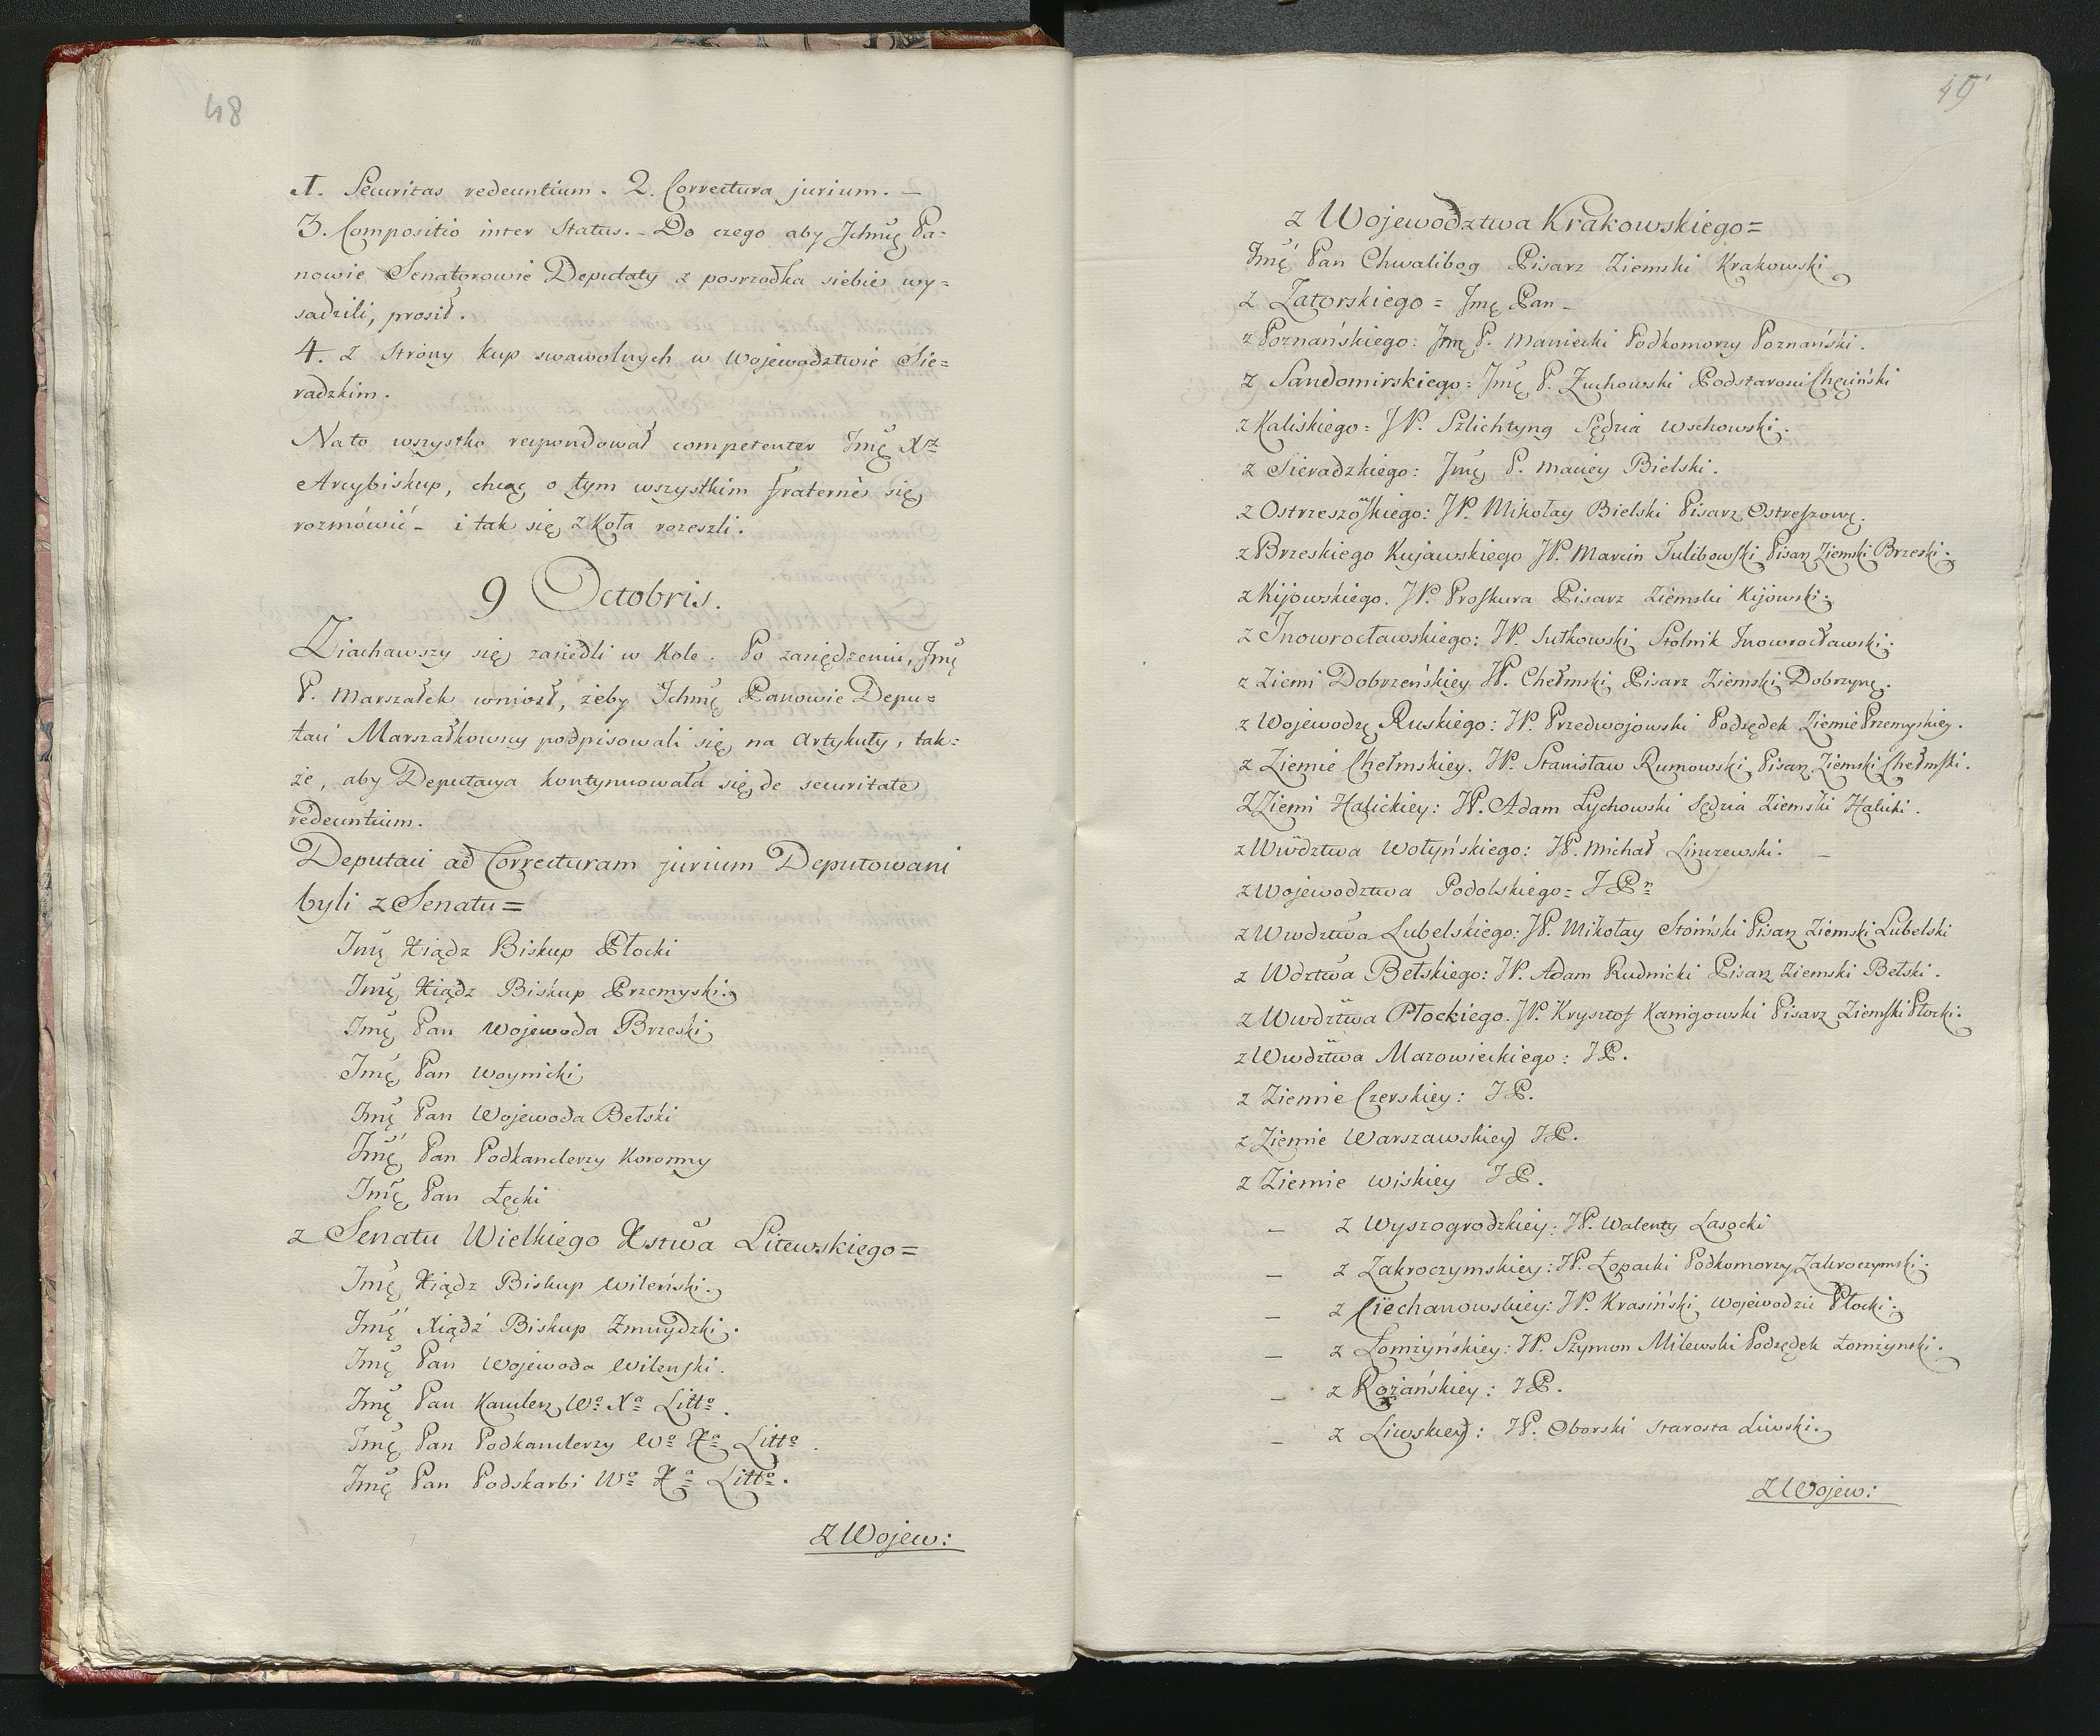 48
1. Securitas redeuntium. 2. Correctura jurium. –
3. Compositio inter Status. – Do czego aby Ichmę Pa=
nowie Senatorowie Deputaty z posrzodka siebie wy=
sadzili, prosił.
4. z strony kup swawolnych w Wojewodztwie Sie=
radzkim.
Na to wszystko respondował competenter Jmę Xdz
Arcybiskup, chcąc o tym wszystkim fraterne się
rozmówić – i tak się z Koła rozeszli.
9 Octobris.
Ziachawszy się zasiedli w Kole. Po zasiędzeniu, Jmę
P. Marszałek wniosł, żeby Ichmę Panowie Depu=
taci Marszałkowscy podpisowali się na Artykuły, tak=
że, aby Deputacya kontynuowała się de securitate
redeuntium.
Deputaci ad Correcturam jurium Deputowani
byli z Senatu =
Jmę Xiądz Biskup Płocki
Jmę Xiądz Biskup Przemyski.
Jmę Pan Wojewoda Brzeski
Jmę Pan Woynicki
Jmę Pan Wojewoda Bełski
Jmę Pan Podkanclerzy Koronny
Jmę Pan Łęcki
z Senatu Wielkiego Xstwa Litewskiego =
Jmę Xiądz Biskup Wileński.
Jmę Xiądz Biskup Zmuydzki.
Jmę Pan Wojewoda Wilenski.
Jmę Pan Kanclerz Wo Xa Litto.
Jmę Pan Podkanclerzy Wo Xa Litto.
Jmę Pan Podskarbi Wo Xa Litto.
Z Wojew:
49
z Wojewodztwa Krakowskiego =
Jmę Pan Chwalibog Pisarz Ziemski Krakowski
z Zatorskiego = Jmę Pan –
z Poznańskiego: Jmę P. Maniecki Podkomorzy Poznański.
z Sandomirskiego = Jmę P. Zuchowski Podstarosci Chęciński
z Kaliskiego = JP. Szlichtyng Sędzia Wschowski.
z Sieradzkiego: Jmę P. Maciey Bielski.
z Ostrzeszoskiego: JP. Mikołay Bielski Pisarz Ostreszowę.
z Brzeskiego Kujawskiego JP. Marcin Tulibowski Pisarz Ziemski Brzeski.
z Kijowskiego. JP. Proskura Pisarz Ziemski Kijowski.
z Jnowrocławskiego: JP. Sutkowski Stolnik Jnowrocławski.
z Ziemi Dobrzeńskiey JP. Chełmski Pisarz Ziemski Dobrzynę.
z Wojewodzę Ruskiego: JP. Przedwojowski Podsędek Ziemie Przemyskiey.
z Ziemie Chełmskiey. JP. Stanisław Rumowski Pisarz Ziemski Chełmski.
Z Ziemi Halickiey: JP. Adam Łychowski Sędzia Ziemski Halicki.
z Wwdztwa Wołyńskiego: JP. Michał Linczewski. –
z Wojewodztwa Podolskiego = J Pn
z Wwdztwa Lubelskiego: JP. Mikołay Stoiński Pisarz Ziemski Lubelski
z Wdztwa Bełskiego: JP. Adam Rudnicki Pisarz Ziemski Bełski.
z Wwdztwa Płockiego. JP. Krysztof Kanigowski Pisarz Ziemski Płocki.
z Wwdztwa Mazowieckiego: JP.
z Ziemie Czerskiey: JP.
z Ziemie Warszawskiey JP.
z Ziemie Wiskiey JP.
– z Wyszogrodzkiey: JP. Walenty Lasocki
– z Zakroczymskiey: JP. Łopacki Podkomorzy Zakroczymski.
– z Ciechanowskiey: JP. Krasiński Wojewodzic Płocki.
– z Łomżyńskiey: JP. Szymon Milewski Podsędek Łomżynski.
– z Rożańskiey: JP.
– z Liwskiey: JP. Oborski Starosta Liwski.
Z Wojew: